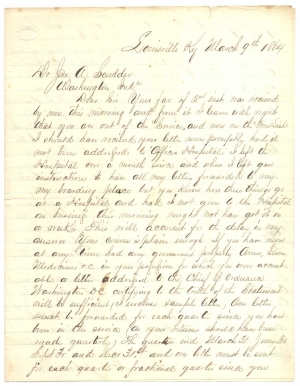 Louisville Ky March 9th 1864
Dr Jno. A. Scudder
Washington, Ind.
Dear Sir Yours of 2d inst was received
by me this morning and from it I learn with regret
that you are out of the Service and now on the
I should have received your letter more promptly had it
not been addressed to Officers Hospital, I left the
Hospital over a month since and when I left gave
instructions to have all my letters forwarded to my
my boarding place but you know how these things go
at a Hospital and had I not gone to the Hospital
on business this morning might not have got it in
a week. This will account for the delay in my
answer. Your course is plain enough If you have never
at any time had any Government property, Arms,
Medicines &c in your possession for which you were account-
able a letter addressed to the Chief of Ordnance
Washington D.C. certifying to the truth of the Statement
will be sufficient, I enclose sample letter. One letter
must be forwarded for each quarter since you have
been in the service (as your returns should have been
made quarterly) The quarters end March 31 June 30
Sept 30 and Decr 31st and one letter must be sent
for each quarter or fractional quarter since you